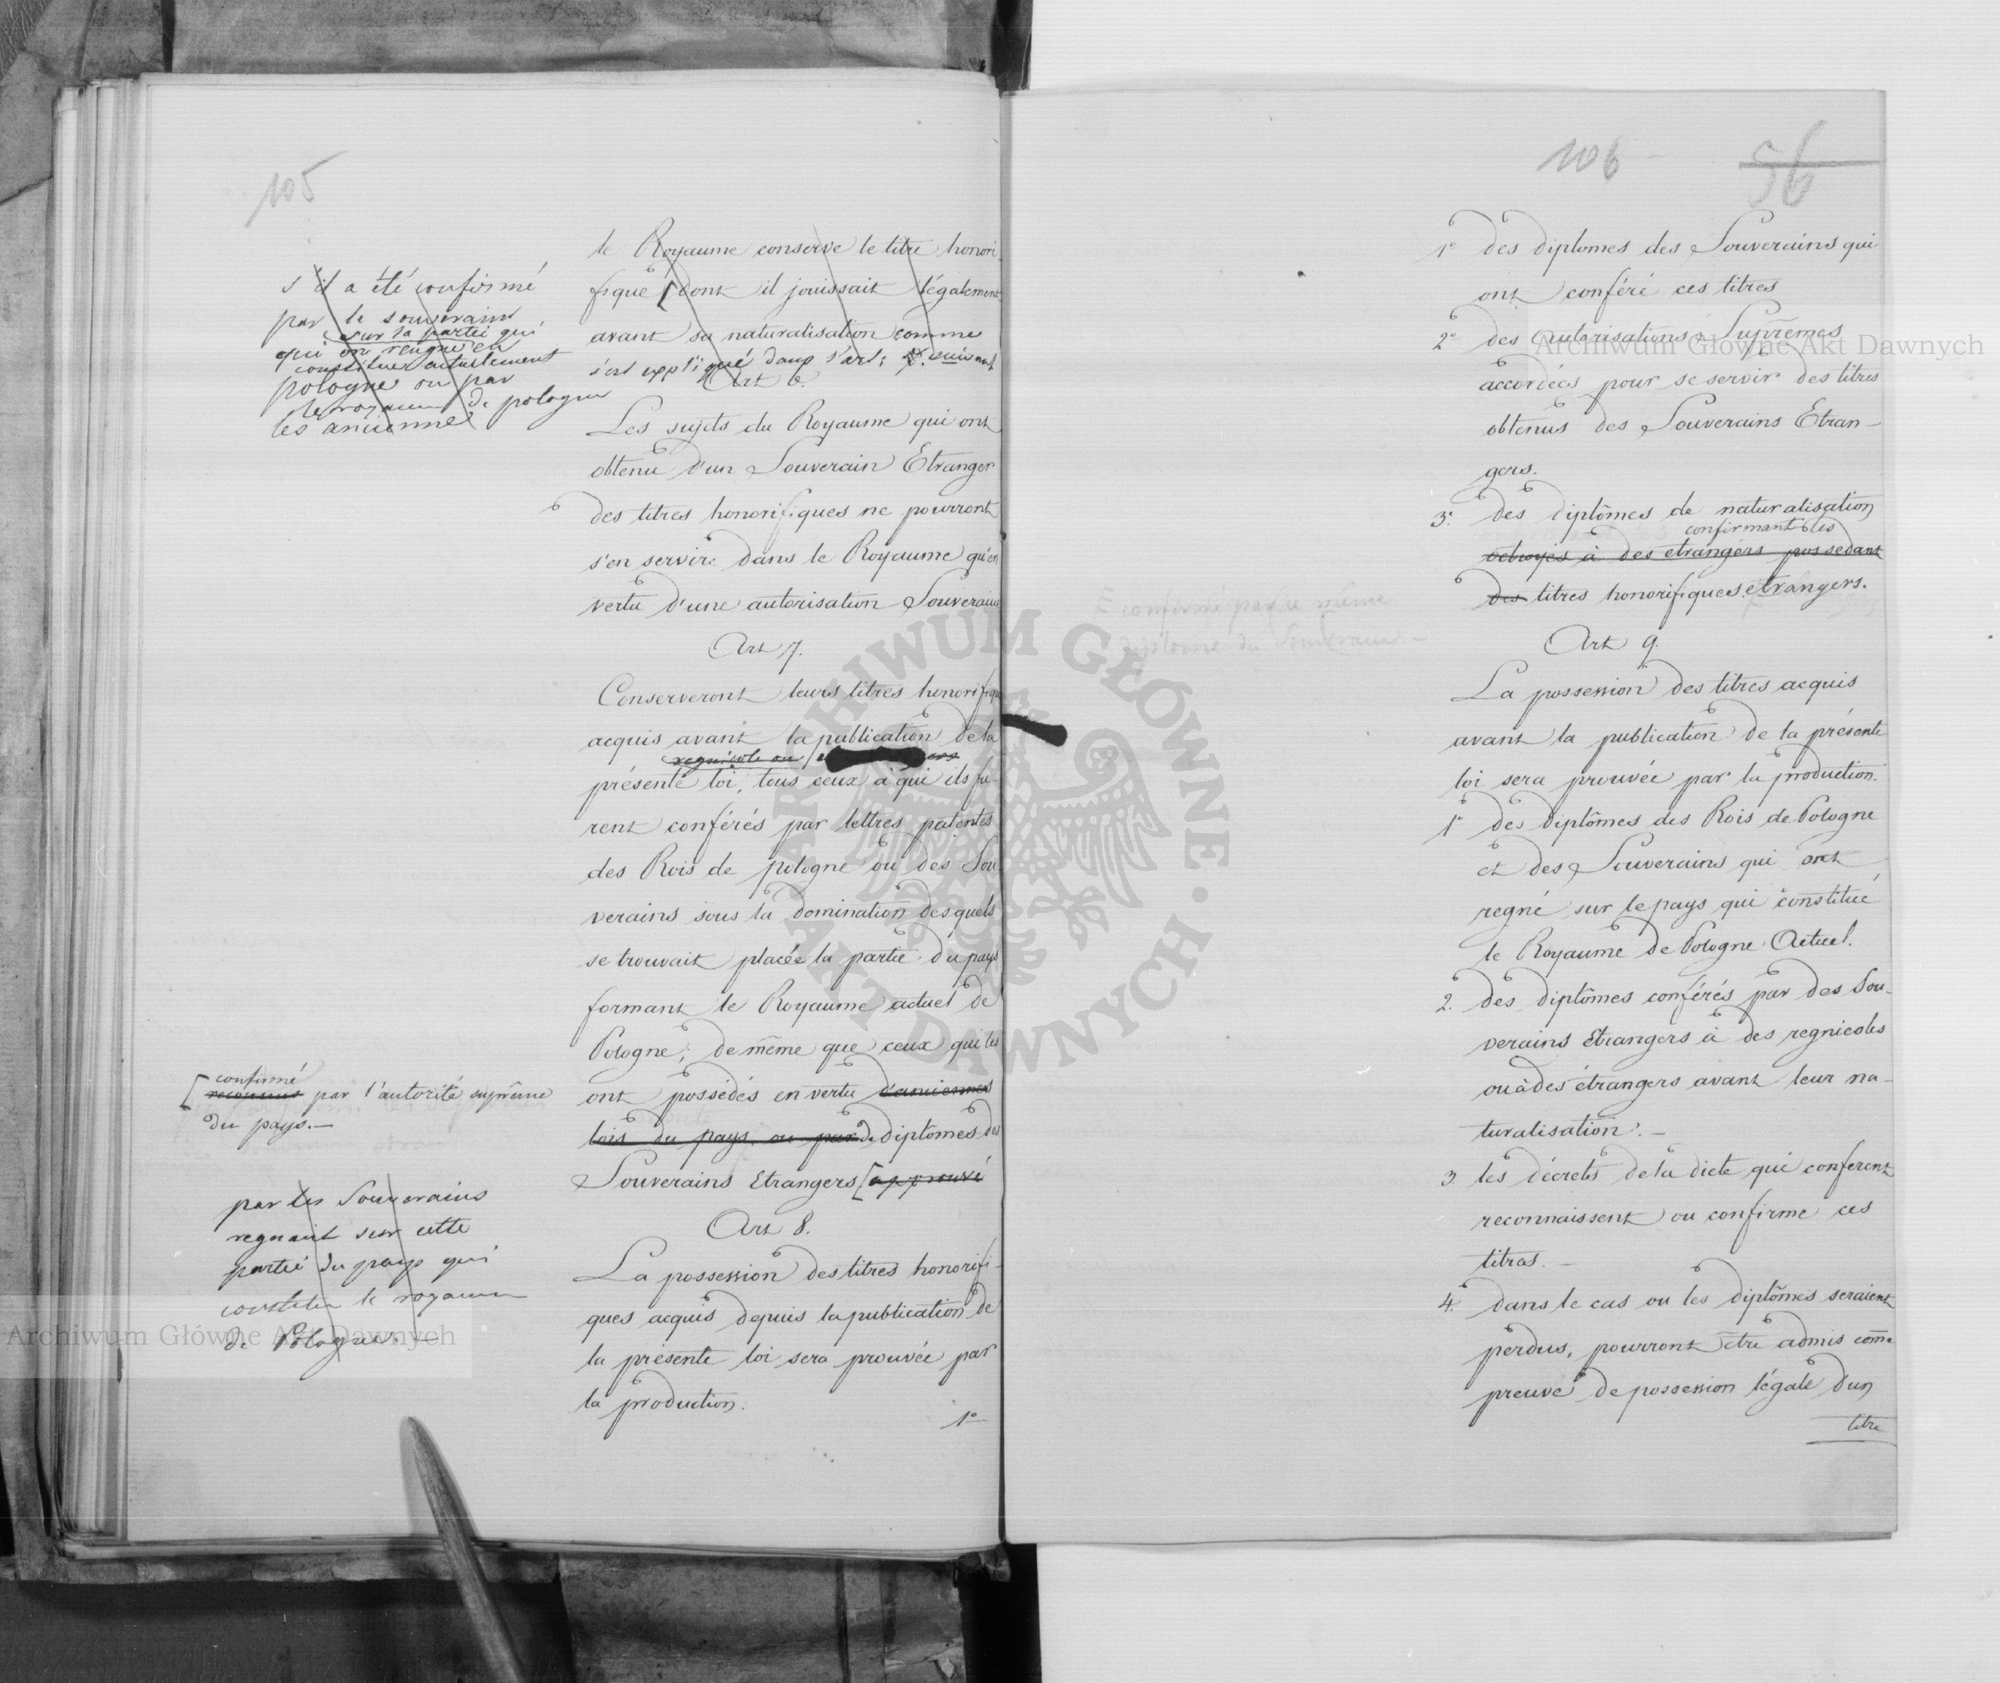 105
s'il a été confirmé
par le souverain
sur la partei qui
qui on reugne en
constitue actuellement
pologne ou par
le royaume de pologne
les anciennes
le Royaume conserve le titre honori-
fique [dont il jouissait légalement
avant sa naturalisation comme
s'est expliqué dans l'art: suivant
Art 6.
Les sujets du Royaume qui ont
obtenu d'un Souverain Etranger
des titres honorifiques ne pourront
s'en servire dans le Royaume qu'en
vertu d'une autorisation Souveraine
Art 7.
Conserveront leurs titres honorifiqu
acquis avant la publication de la
regnicole ou
présente loi, tous ceux à qui ils fu-
rent conférés par lettres patentes
des Rois de pologne ou des Sou
verains sous la domination desquels
se trouvait placée la partie du pays
formant le Royaume actuel de
Pologne, de même que ceux qui les
ont possédés en vertu d'anciennes
lois du pays, ou par de diplômes des
Souverains Etrangers [approuvé
[confirmé
reconnus par l'autorité suprême
du pays.—
par les Souverains
regnant sur cette
partie du pays qui
constitue le royaume
de Pologne.—
Art 8.
La possession des titres honorifi-
ques acquis depuis la publication de
la présente loi sera prouvée par
la production.
1°
106
56
1° des diplomes des Souverains qui
ont conféré ces titres
2° des Autorisations Suprêmes
accordées pour se servir des titres
obtenus des Souverains Etran-
gers.
3° des diplômes de naturalisation
confirmant les
octroyés à des etrangers possedant
des titres honorifiques etrangers.
confirmé par le même
diplome du Souverain —
Art 9.
La possession des titres acquis
avant la publication de la présente
loi sera prouvée par la production.
1° des diplômes des Rois de Pologne
et des Souverains qui ont
regné sur le pays qui constitué
le Royaume de Pologne Actuel.
2. des diplômes conférés par des Sou-
verains Etrangers à des regnicoles
ou à des étrangers avant leur na-
turalisation.—
3. les décrets de la diete qui conferent
reconnaissent ou confirme ces
titres.—
4. dans le cas ou les diplômes seraient
perdus, pourront être admis come
preuve de possession légale d'un
titre
Archiwum Główne Akt Dawnych
Archiwum Główne Akt Dawnych
ARCHIWUM GŁÓWNE • AKT DAWNYCH •